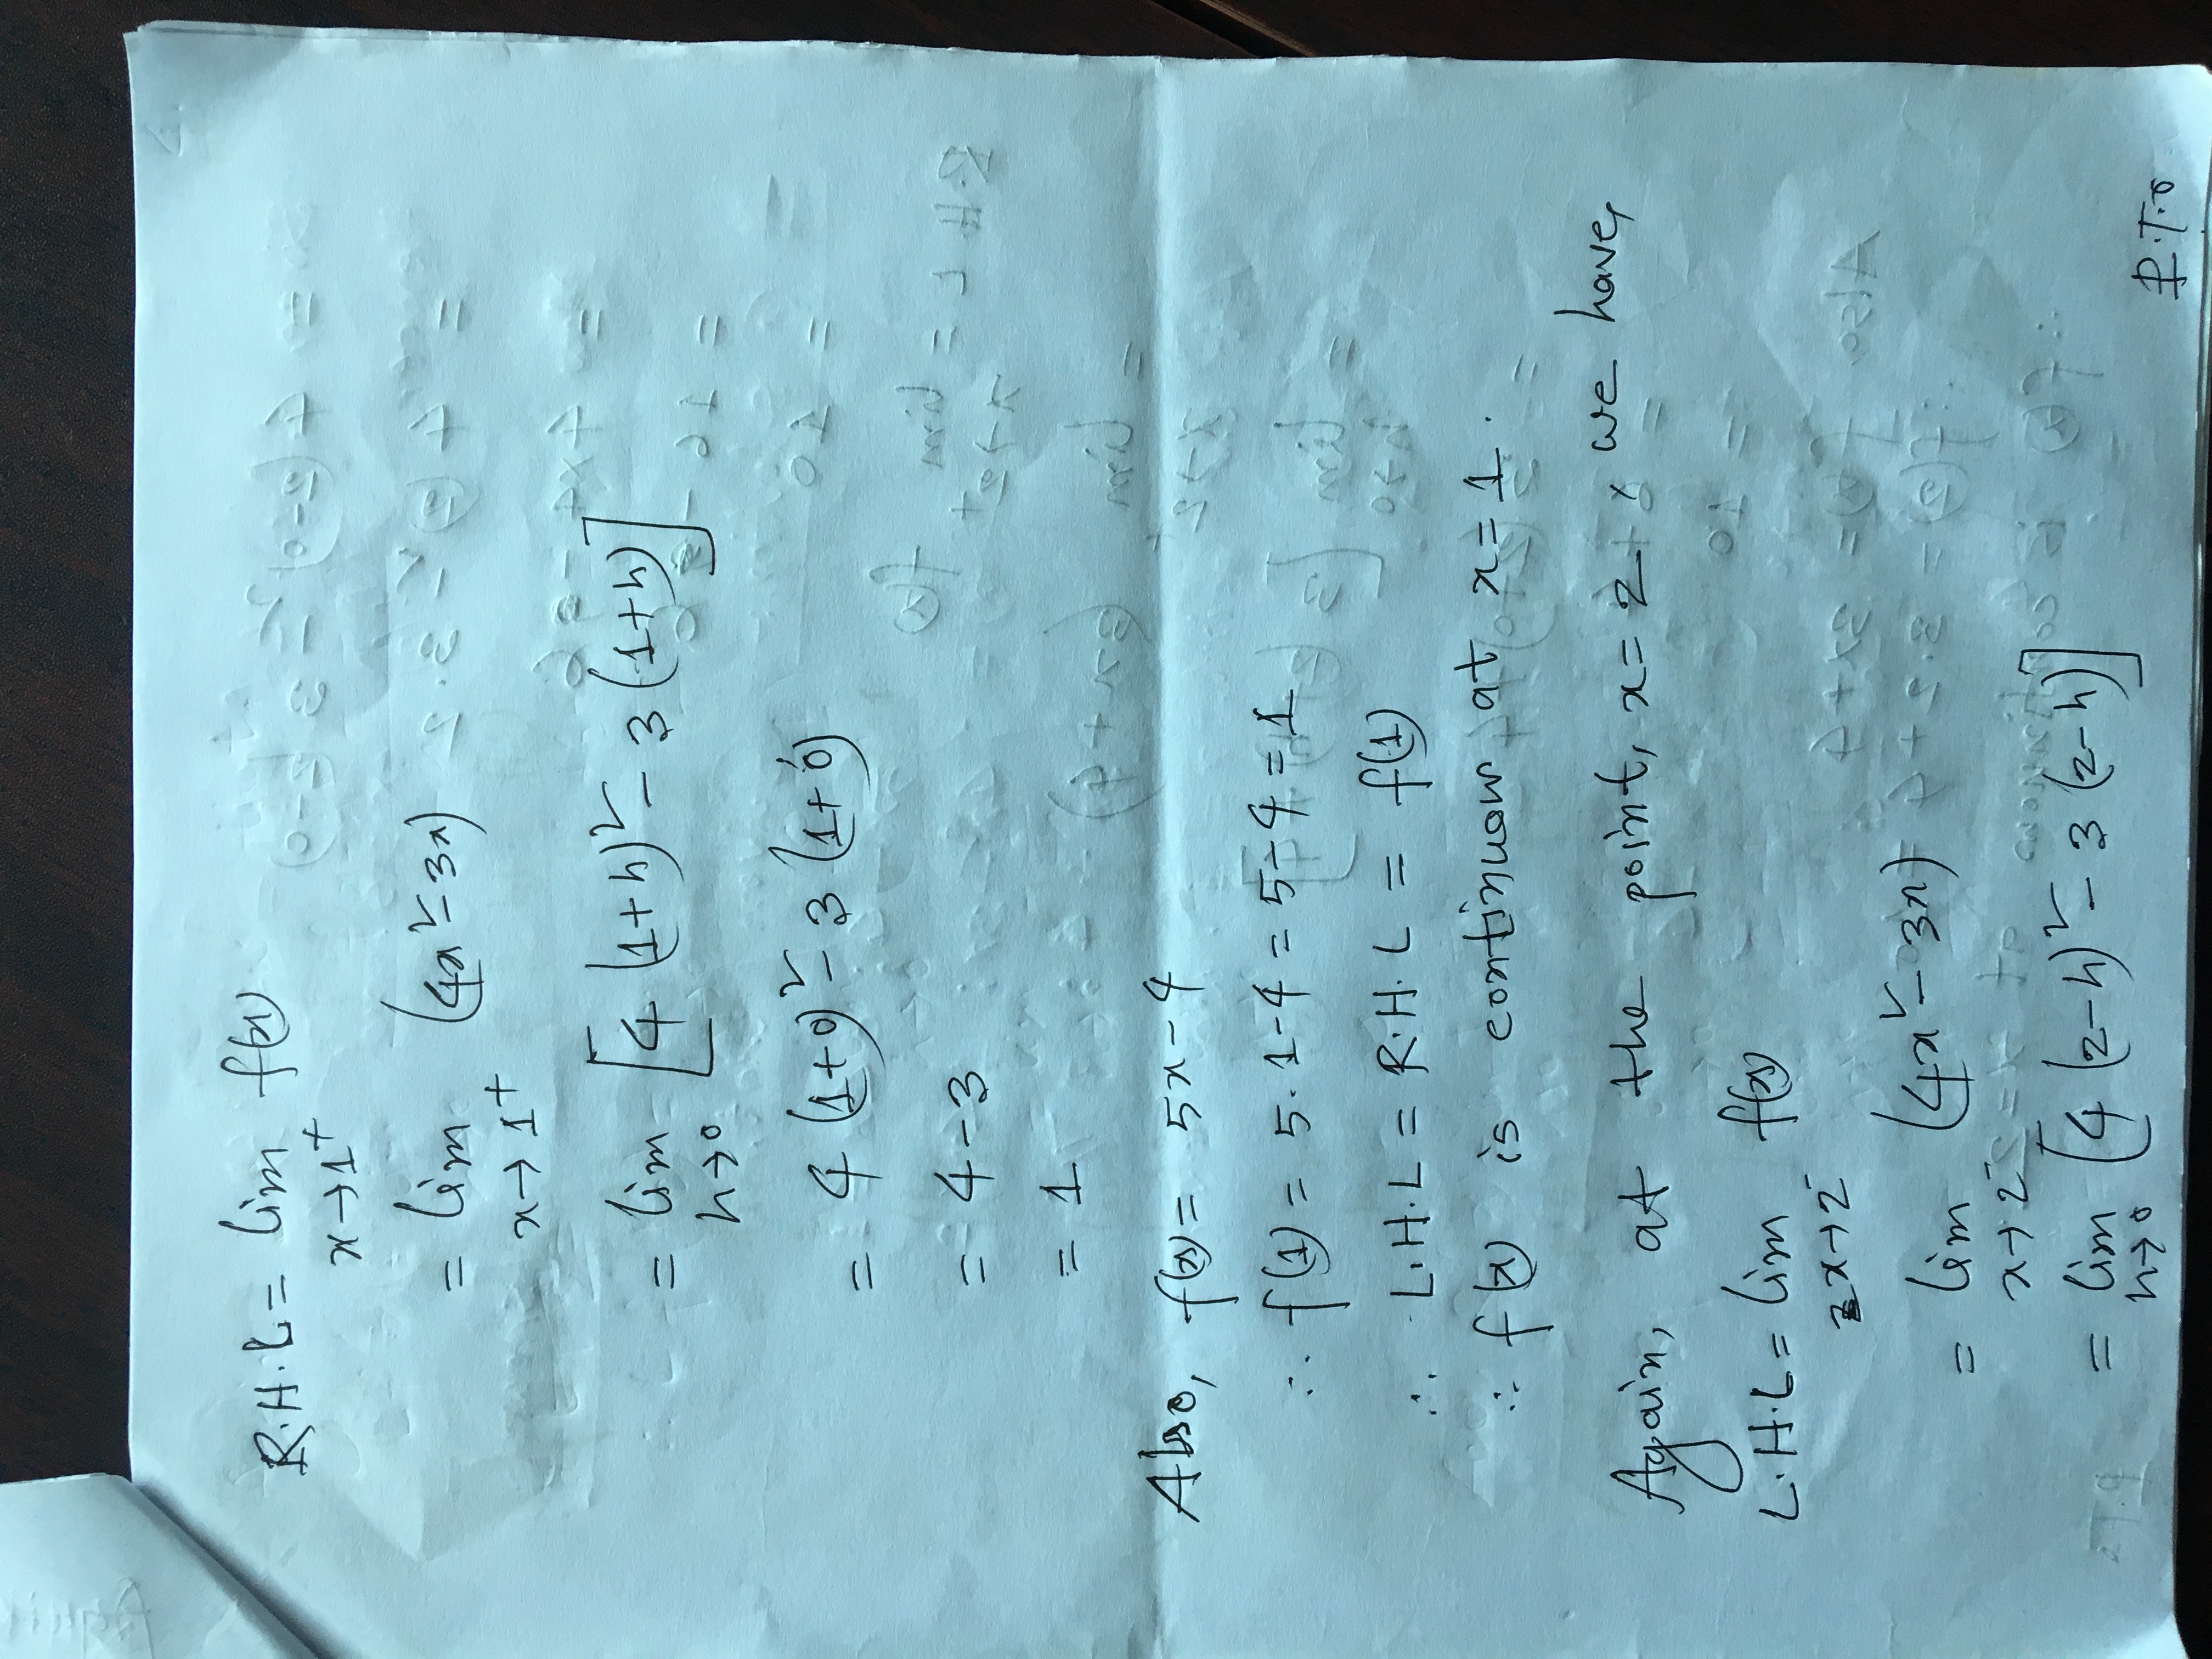 R.H.L = lim f(x)
x→1⁺
= lim (4x² - 3x)
x→1⁺
= lim [4 (1+h)² - 3 (1+h)]
h→0
= 4 (1+0)² - 3 (1+0)
= 4 - 3
= 1
Also, f(x) = 5x - 4
∴ f(1) = 5.1 - 4 = 5 - 4 = 1
∴ L.H.L = R.H.L = f(1)
∴ f(x) is continuous at x = 1.
Again, at the point, x = 2, we have,
L.H.L = lim f(x)
x→2⁻
= lim (4x² - 3x)
x→2⁻
= lim [4 (2-h)² - 3 (2-h)]
h→0
P.T.O